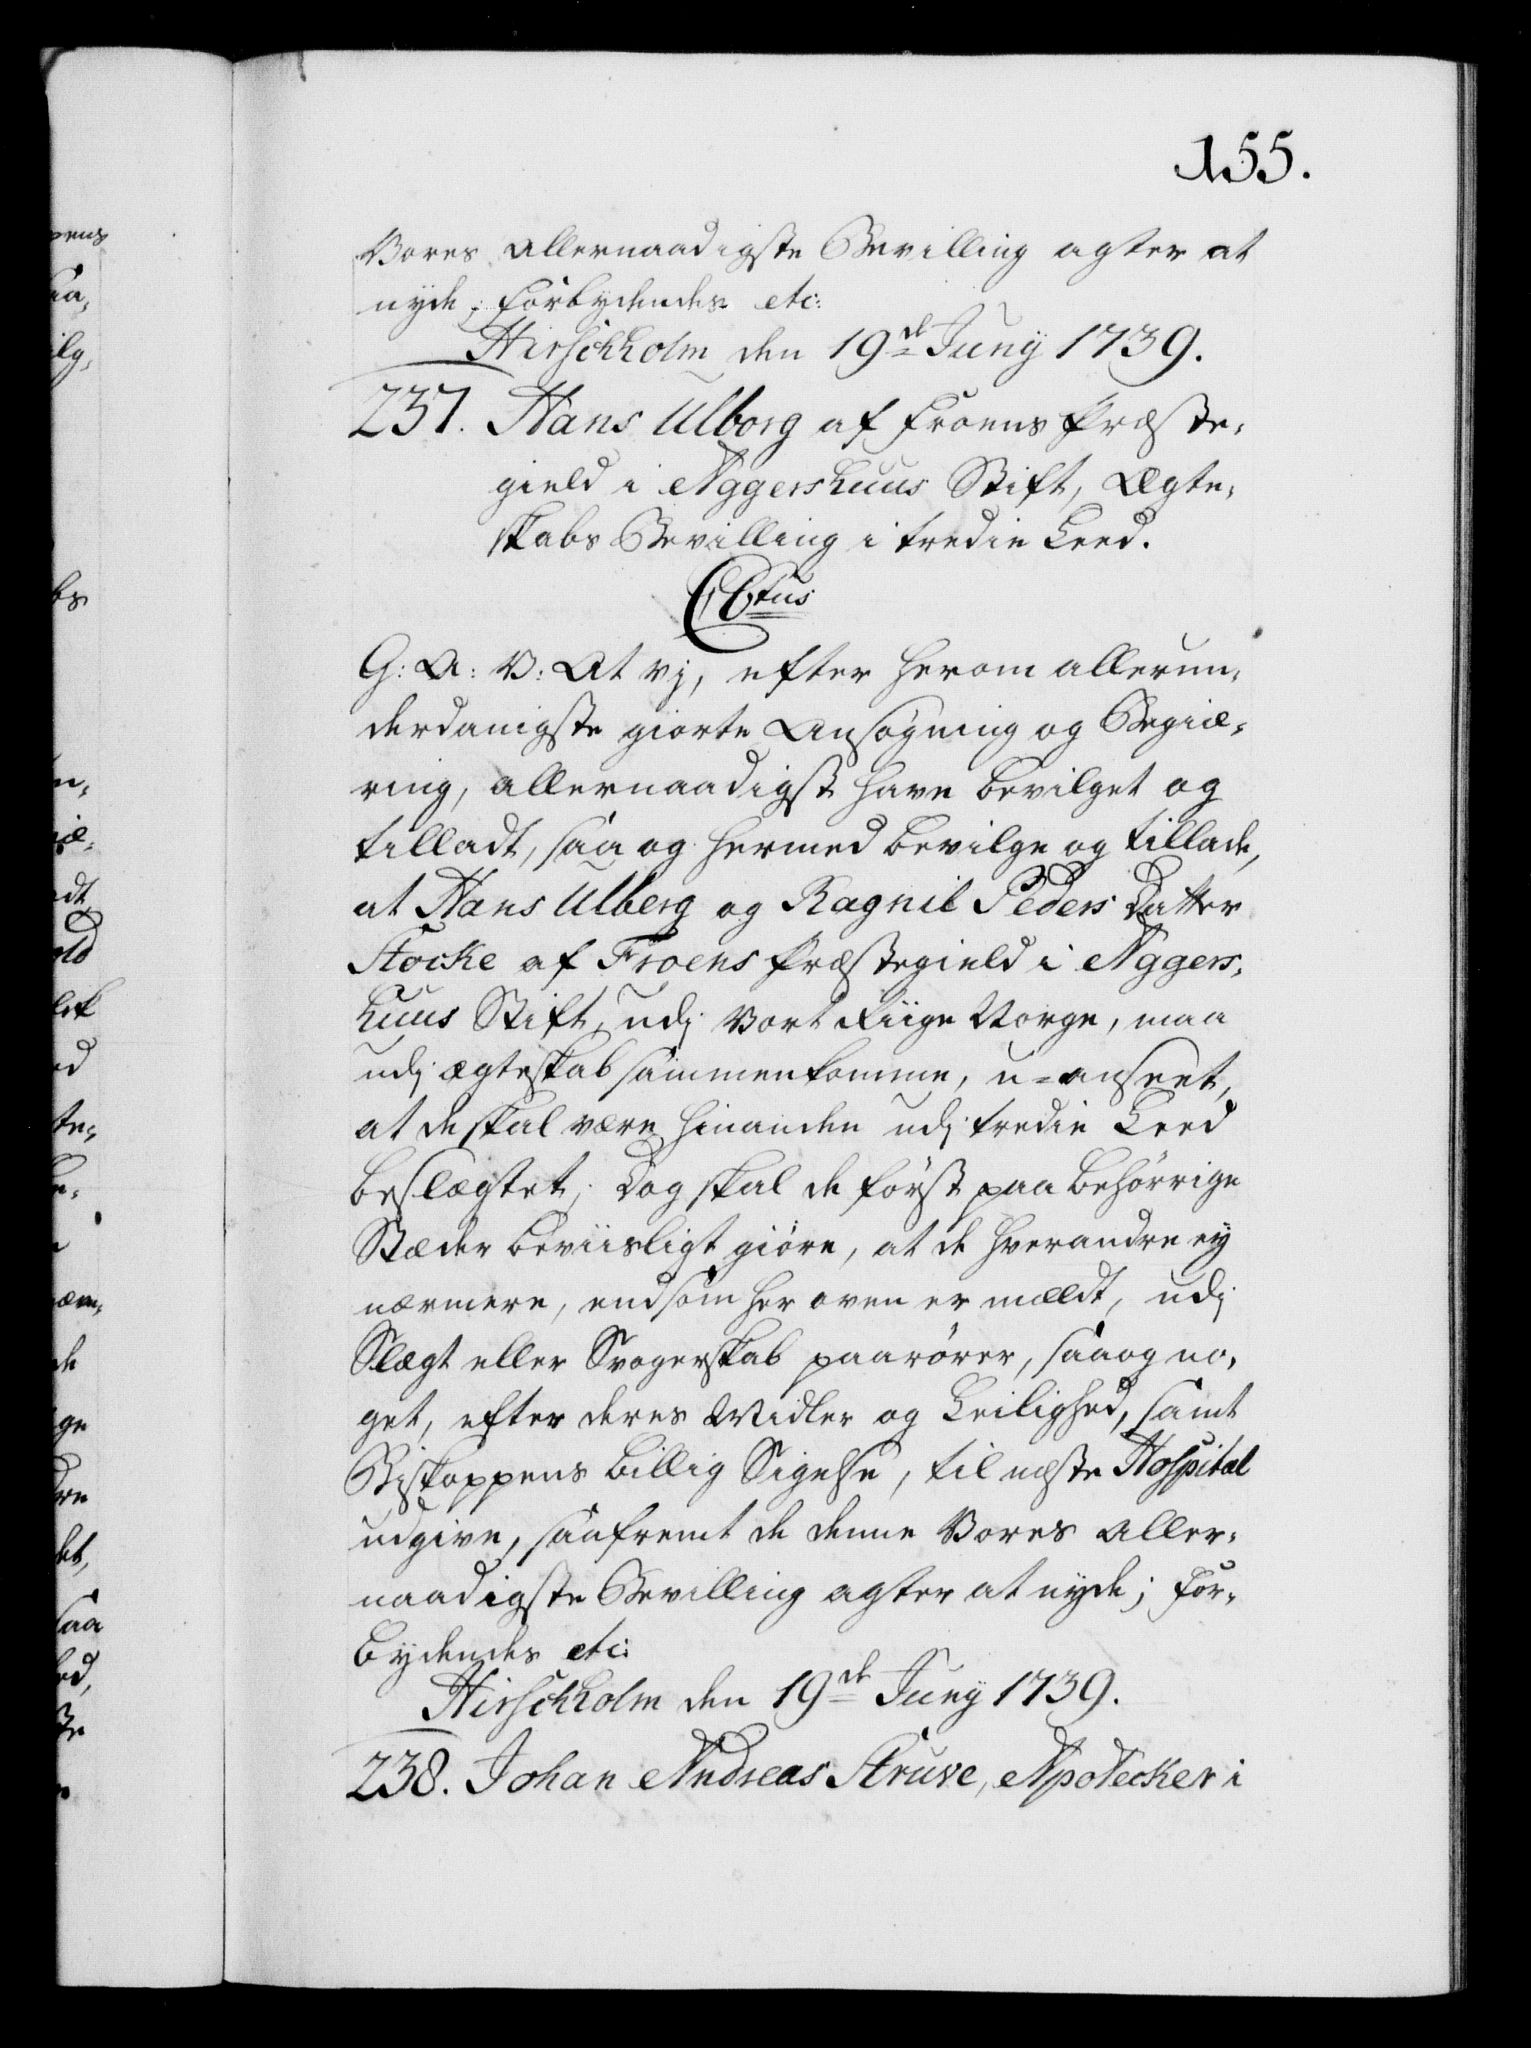 155.
Vores allernaadigste Bevilling agter at
nyde; forbydendes etc:
Hirschholm den 19de Juny 1739.
237. Hans Ulborg af Froens Præste-
gield i Aggershuus Stift, Ægte-
skabs Bevilling i tredie Leed.
C 6tus
G: A: V: At vj, efter herom allerun-
derdanigste giorte Ansøgning og Begiæ-
ring, allernaadigst have bevilget og
tilladt, saa og hermed bevilge og tillade,
at Hans Ulberg og Ragnil Peders Datter
Stocke af Froens Præstegield i Aggers-
huus Stift, udj Vort Riige Norge, maa
udj ægteskab sammenkomme, u-anseet,
at de skal være hinanden udj tredie Leed
beslægtet; Dog skal de først paa behørrige
Stæder beviisligt giøre, at de hverandre ey
nærmere, end som her oven er meldt, udj
Slægt eller Svogerskab paarører, saa og no-
get, efter deres Midler og Leilighed, samt
Biskoppens billig Sigelse, til næste Hospital
udgive, saafremt de denne Vores aller-
naadigste Bevilling agter at nyde; for-
bydendes etc:
Hirschholm den 19de Juny 1739.
238. Johan Andreas Struve, Apotecker i